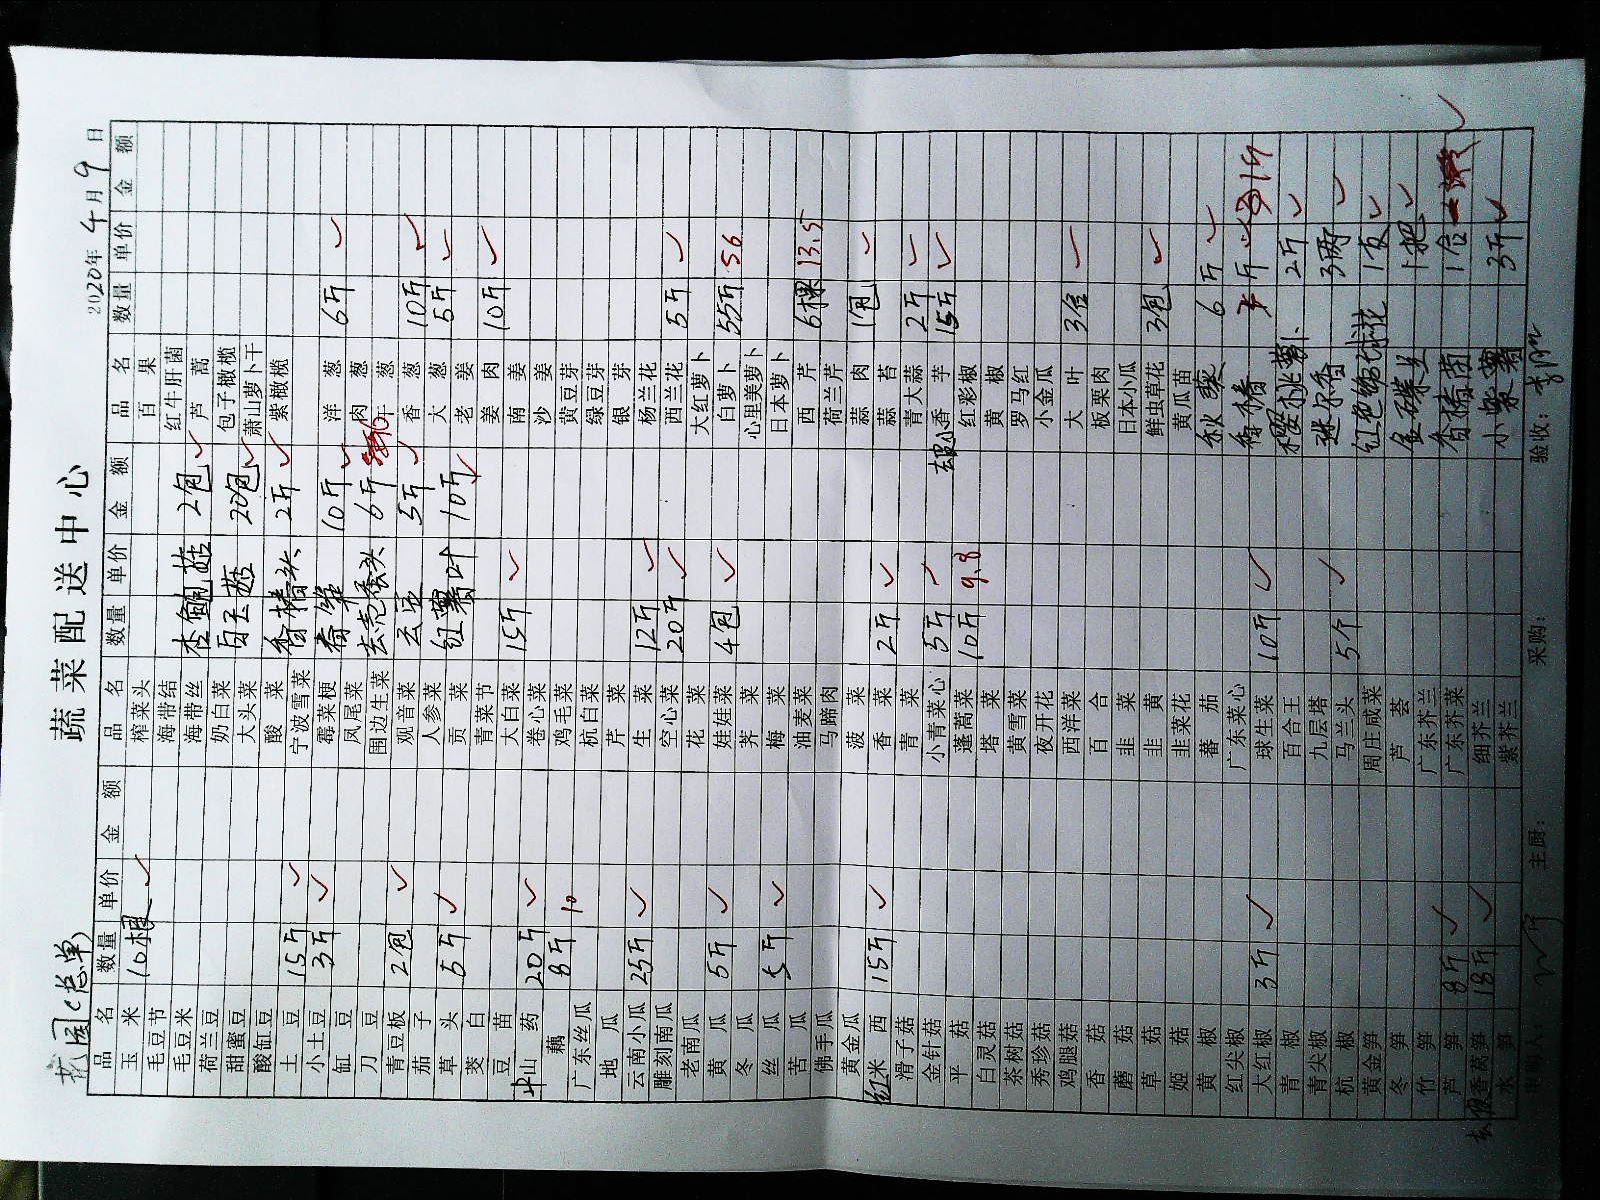 花园(总单)
蔬菜配送中心
2020年 4月 9日
品名 数量 单价 金额 品名 数量 单价 金额 品名 数量 单价 金额
玉米 10根 ✓ 榨菜头 百果
毛豆节 海带结 红牛肝菌
毛豆米 海带丝 杏鲍菇 2包 ✓ 芦蒿
荷兰豆 奶白菜 包子橄榄
甜蜜豆 大头菜 白玉菇 20包 ✓ 萧山萝卜干
酸缸豆 酸菜 香椿头 2斤 ✓ 紫橄榄
土豆 15斤 ✓ 宁波雪菜
小土豆 3斤 ✓ 霉菜梗 10斤 ✓ 洋葱 6斤 ✓
缸豆 凤尾菜 肉葱
刀豆 围边生菜 去壳蚕头 6斤 干葱
青豆板 2包 ✓ 观音菜 云豆 5斤 ✓ 香葱 10斤 ✓
茄子 人参菜 大葱 5斤 ✓
草头 6斤 ✓ 贡菜 红薯叶 10斤 ✓ 老姜
茭白 青菜节 姜肉 10斤 ✓
豆苗 大白菜 15斤 ✓ 南姜
山药 20斤 ✓ 卷心菜 沙姜
藕 8斤 10 鸡毛菜 黄豆芽
广东丝瓜 杭白菜 绿豆芽
地瓜 芹菜 银芽
云南小瓜 25斤 ✓ 生菜 12斤 ✓ 杨兰花
雕刻南瓜 空心菜 20斤 ✓ 西兰花 5斤 ✓
老南瓜 花菜 大红萝卜
黄瓜 5斤 ✓ 娃娃菜 4包 ✓ 白萝卜 55斤 56
冬瓜 荠菜 心里美萝卜
丝瓜 5斤 ✓ 梅菜 日本萝卜
苦瓜 油麦菜 西芹 6棵 13.5
佛手瓜 马蹄肉 荷兰芹
黄金瓜 菠菜 蒜肉 1包 ✓
红米西 15斤 ✓ 香菜 2斤 ✓ 蒜苔
滑子菇 青菜 青大蒜 2斤 ✓
金针菇 小青菜心 5斤 ✓ 香芋 15斤 ✓
平菇 蓬蒿菜 10斤 9.8 红彩椒
白灵菇 塔菜 黄椒
茶树菇 黄雪菜 罗马红
秀珍菇 夜开花 小金瓜
鸡腿菇 西洋菜 大叶 3包 ✓
香菇 百合 板栗肉
蘑菇 韭菜 日本小瓜
草菇 韭黄 鲜虫草花 3包 ✓
姬菇 韭菜花 黄瓜苗
黄椒 番茄 秋葵 6斤 ✓
红尖椒 广东菜心
大红椒 3斤 ✓ 球生菜 10斤 ✓
青椒 百合王 樱桃萝卜 2斤 ✓
青尖椒 九层塔
杭椒 马兰头 5个 ✓ 迷尔香 3两 ✓
黄金笋 周庄咸菜 红色绣球花 1支 ✓
冬笋 芦荟 1把 ✓
竹笋 广东芥兰
芦笋 8斤 ✓ 广东芥菜 1台
香莴笋 18斤 ✓ 细芥兰
水 紫芥兰 小紫薯 3斤 ✓
主厨: 采购: 验收: